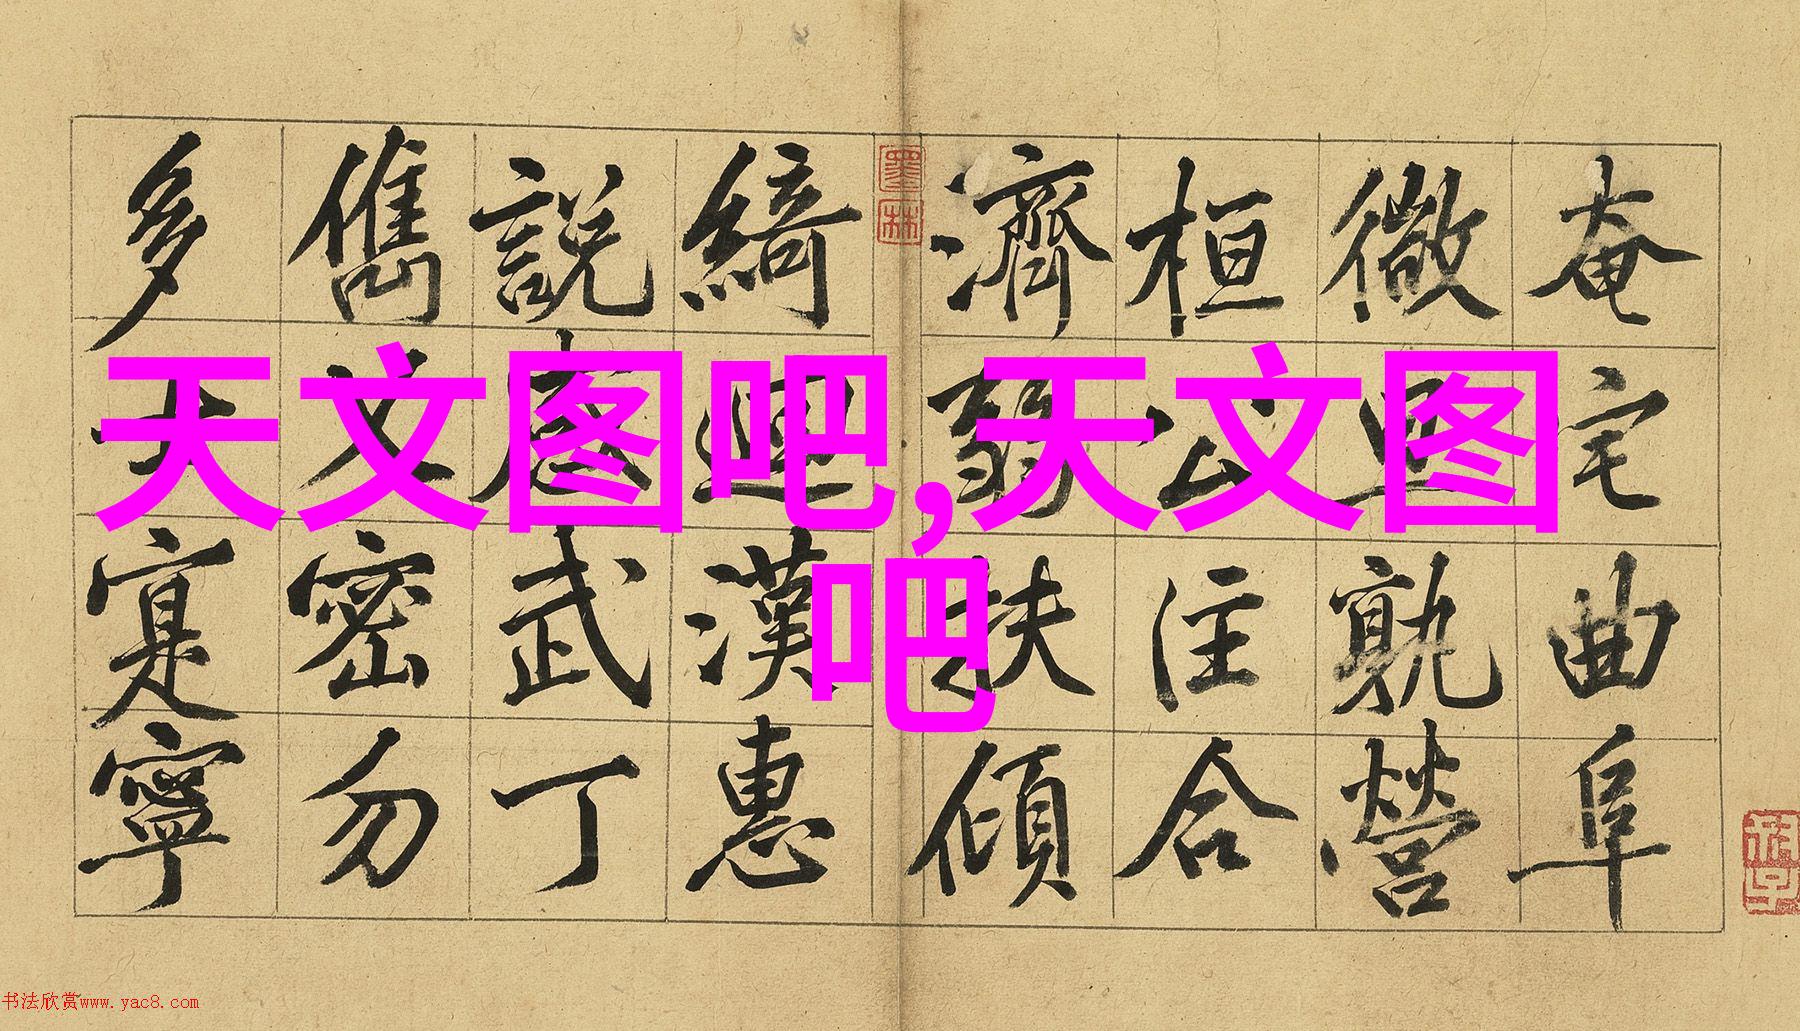 天文图吧,天文图
吧
奄宅曲阜
微旦孰營
桓公匡合
濟弱扶傾
綺迴漢惠
說感武丁
儁乂密勿
多士寔寧
墨林
书法欣赏www.yac8.com